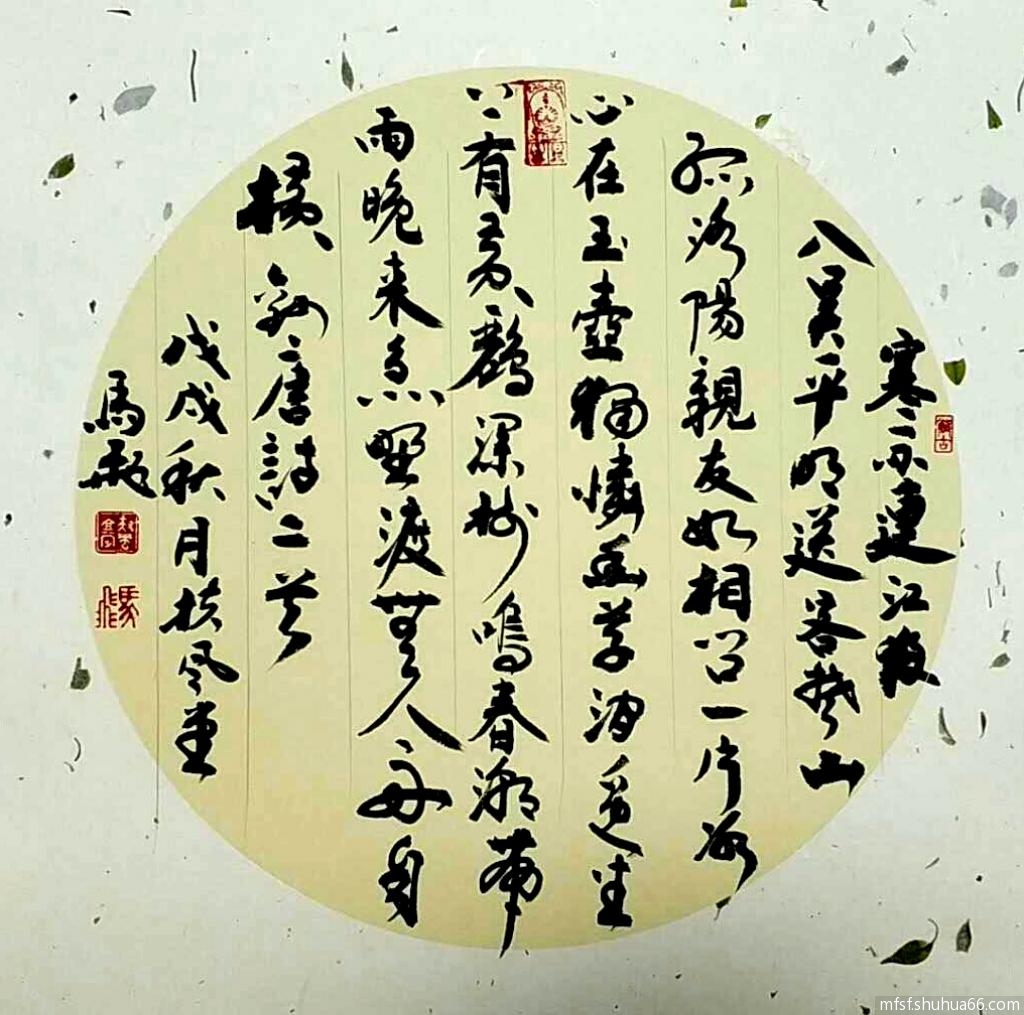 寒雨連江夜
入吴平明送客楚山
孤洛陽親友如相问一片冰
心在玉壺獨憐幽草澗邊生
上有黄鸝深樹鳴春潮帶
雨晚来急野渡無人舟自
横 録唐詩二首
戊戌秋月扶风堂
馬飛
mfsf.shuhua66.com